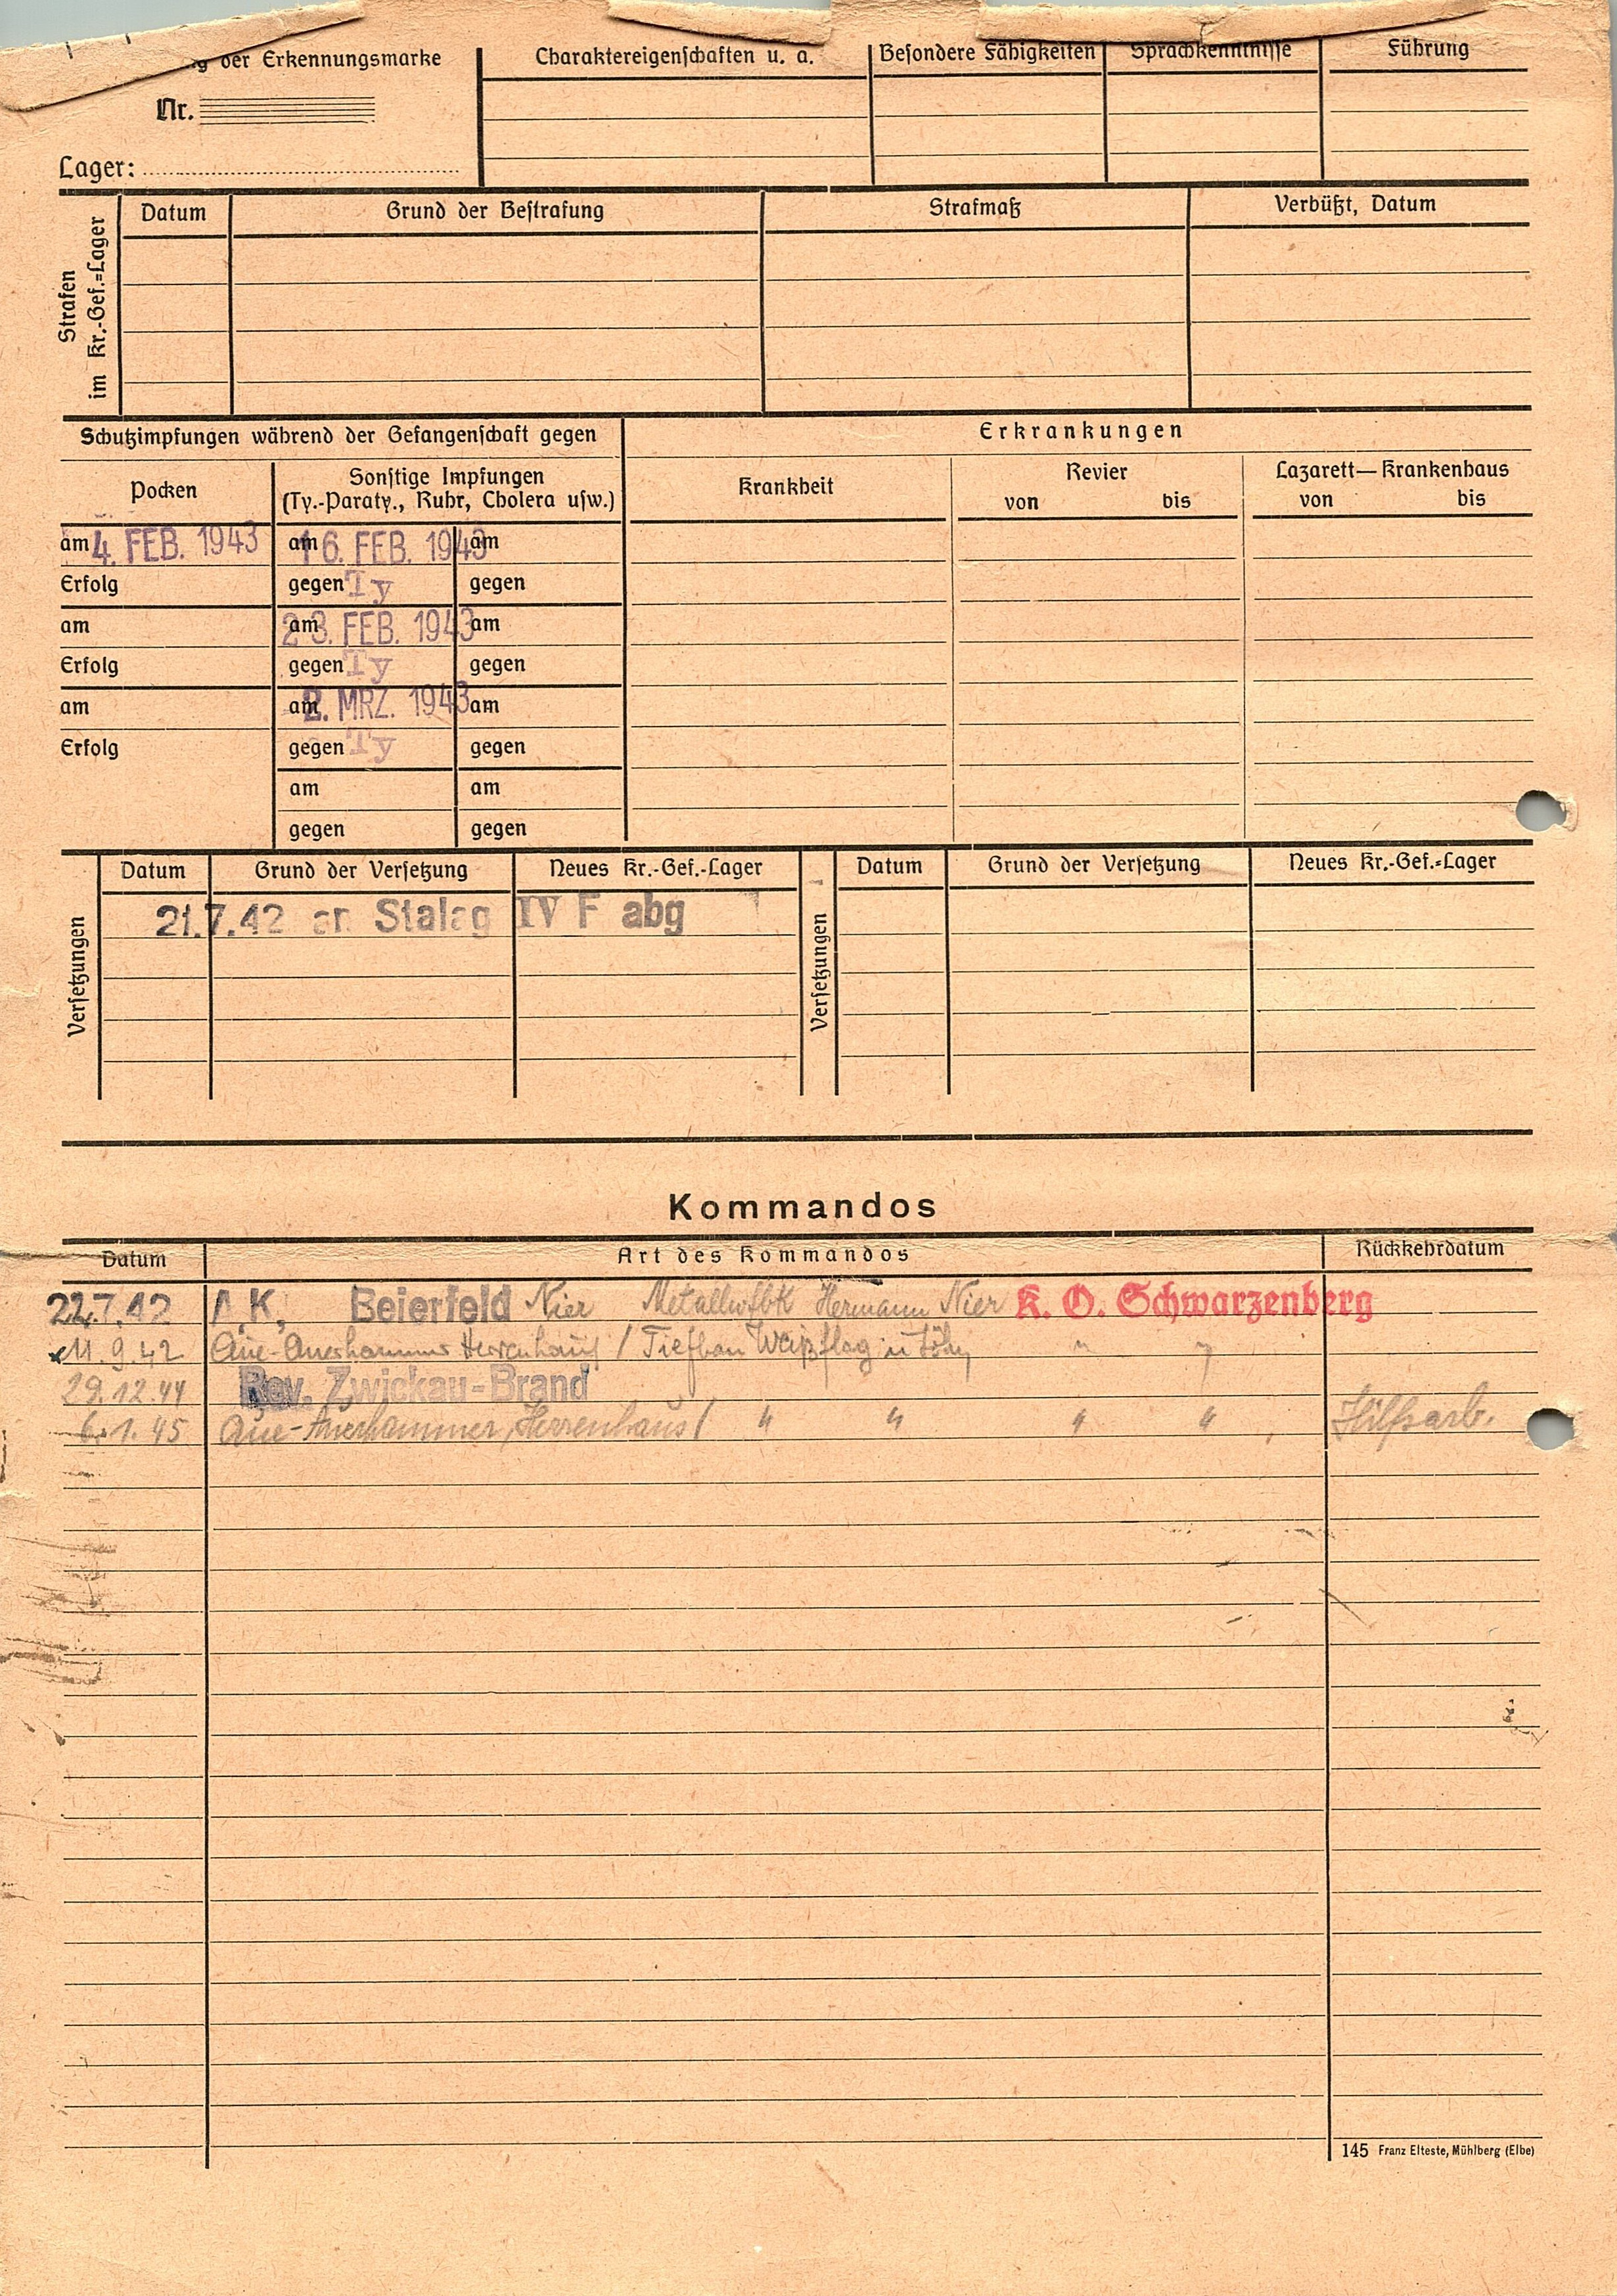 der Erkennungsmarke
Nr.
Lager:
Charaktereigenschaften u. a.
Besondere Fähigkeiten
Sprachkenntnisse
Führung
Strafen
im Kr.-Gef.=Lager
Datum
Grund der Bestrafung
Strafmaß
Verbüßt, Datum
Schutzimpfungen während der Gefangenschaft gegen
Erkrankungen
Pocken
Sonstige Impfungen
(Ty.-Paraty., Ruhr, Cholera usw.)
Krankheit
Revier
von bis
Lazarett—Krankenhaus
von bis
am 4. FEB. 1943 am 16. FEB. 1943 am
Erfolg gegen Ty gegen
am am 23. FEB. 1943 am
Erfolg gegen Ty gegen
am am 2. MRZ. 1943 am
Erfolg gegen Ty gegen
am am
gegen gegen
Versetzungen
Datum Grund der Versetzung Neues Kr.-Gef.-Lager
21.7.42 an Stalag IV F abg
Versetzungen
Datum Grund der Versetzung Neues Kr.-Gef.=Lager
Kommandos
Datum Art des Kommandos Rückkehrdatum
22.7.42 A.K, Beierfeld Nier Metallwfbk Hermann Nier K. O. Schwarzenberg
11.9.42 Aue-Auerhammer Herrenhaus / Tiefbau Weißflog u " "
29.12.44 Rev. Zwickau-Brand
6.1.45 Aue-Auerhammer, Herrenhaus / " " " " Hilfsarb.
145 Franz Elteste, Mühlberg (Elbe)